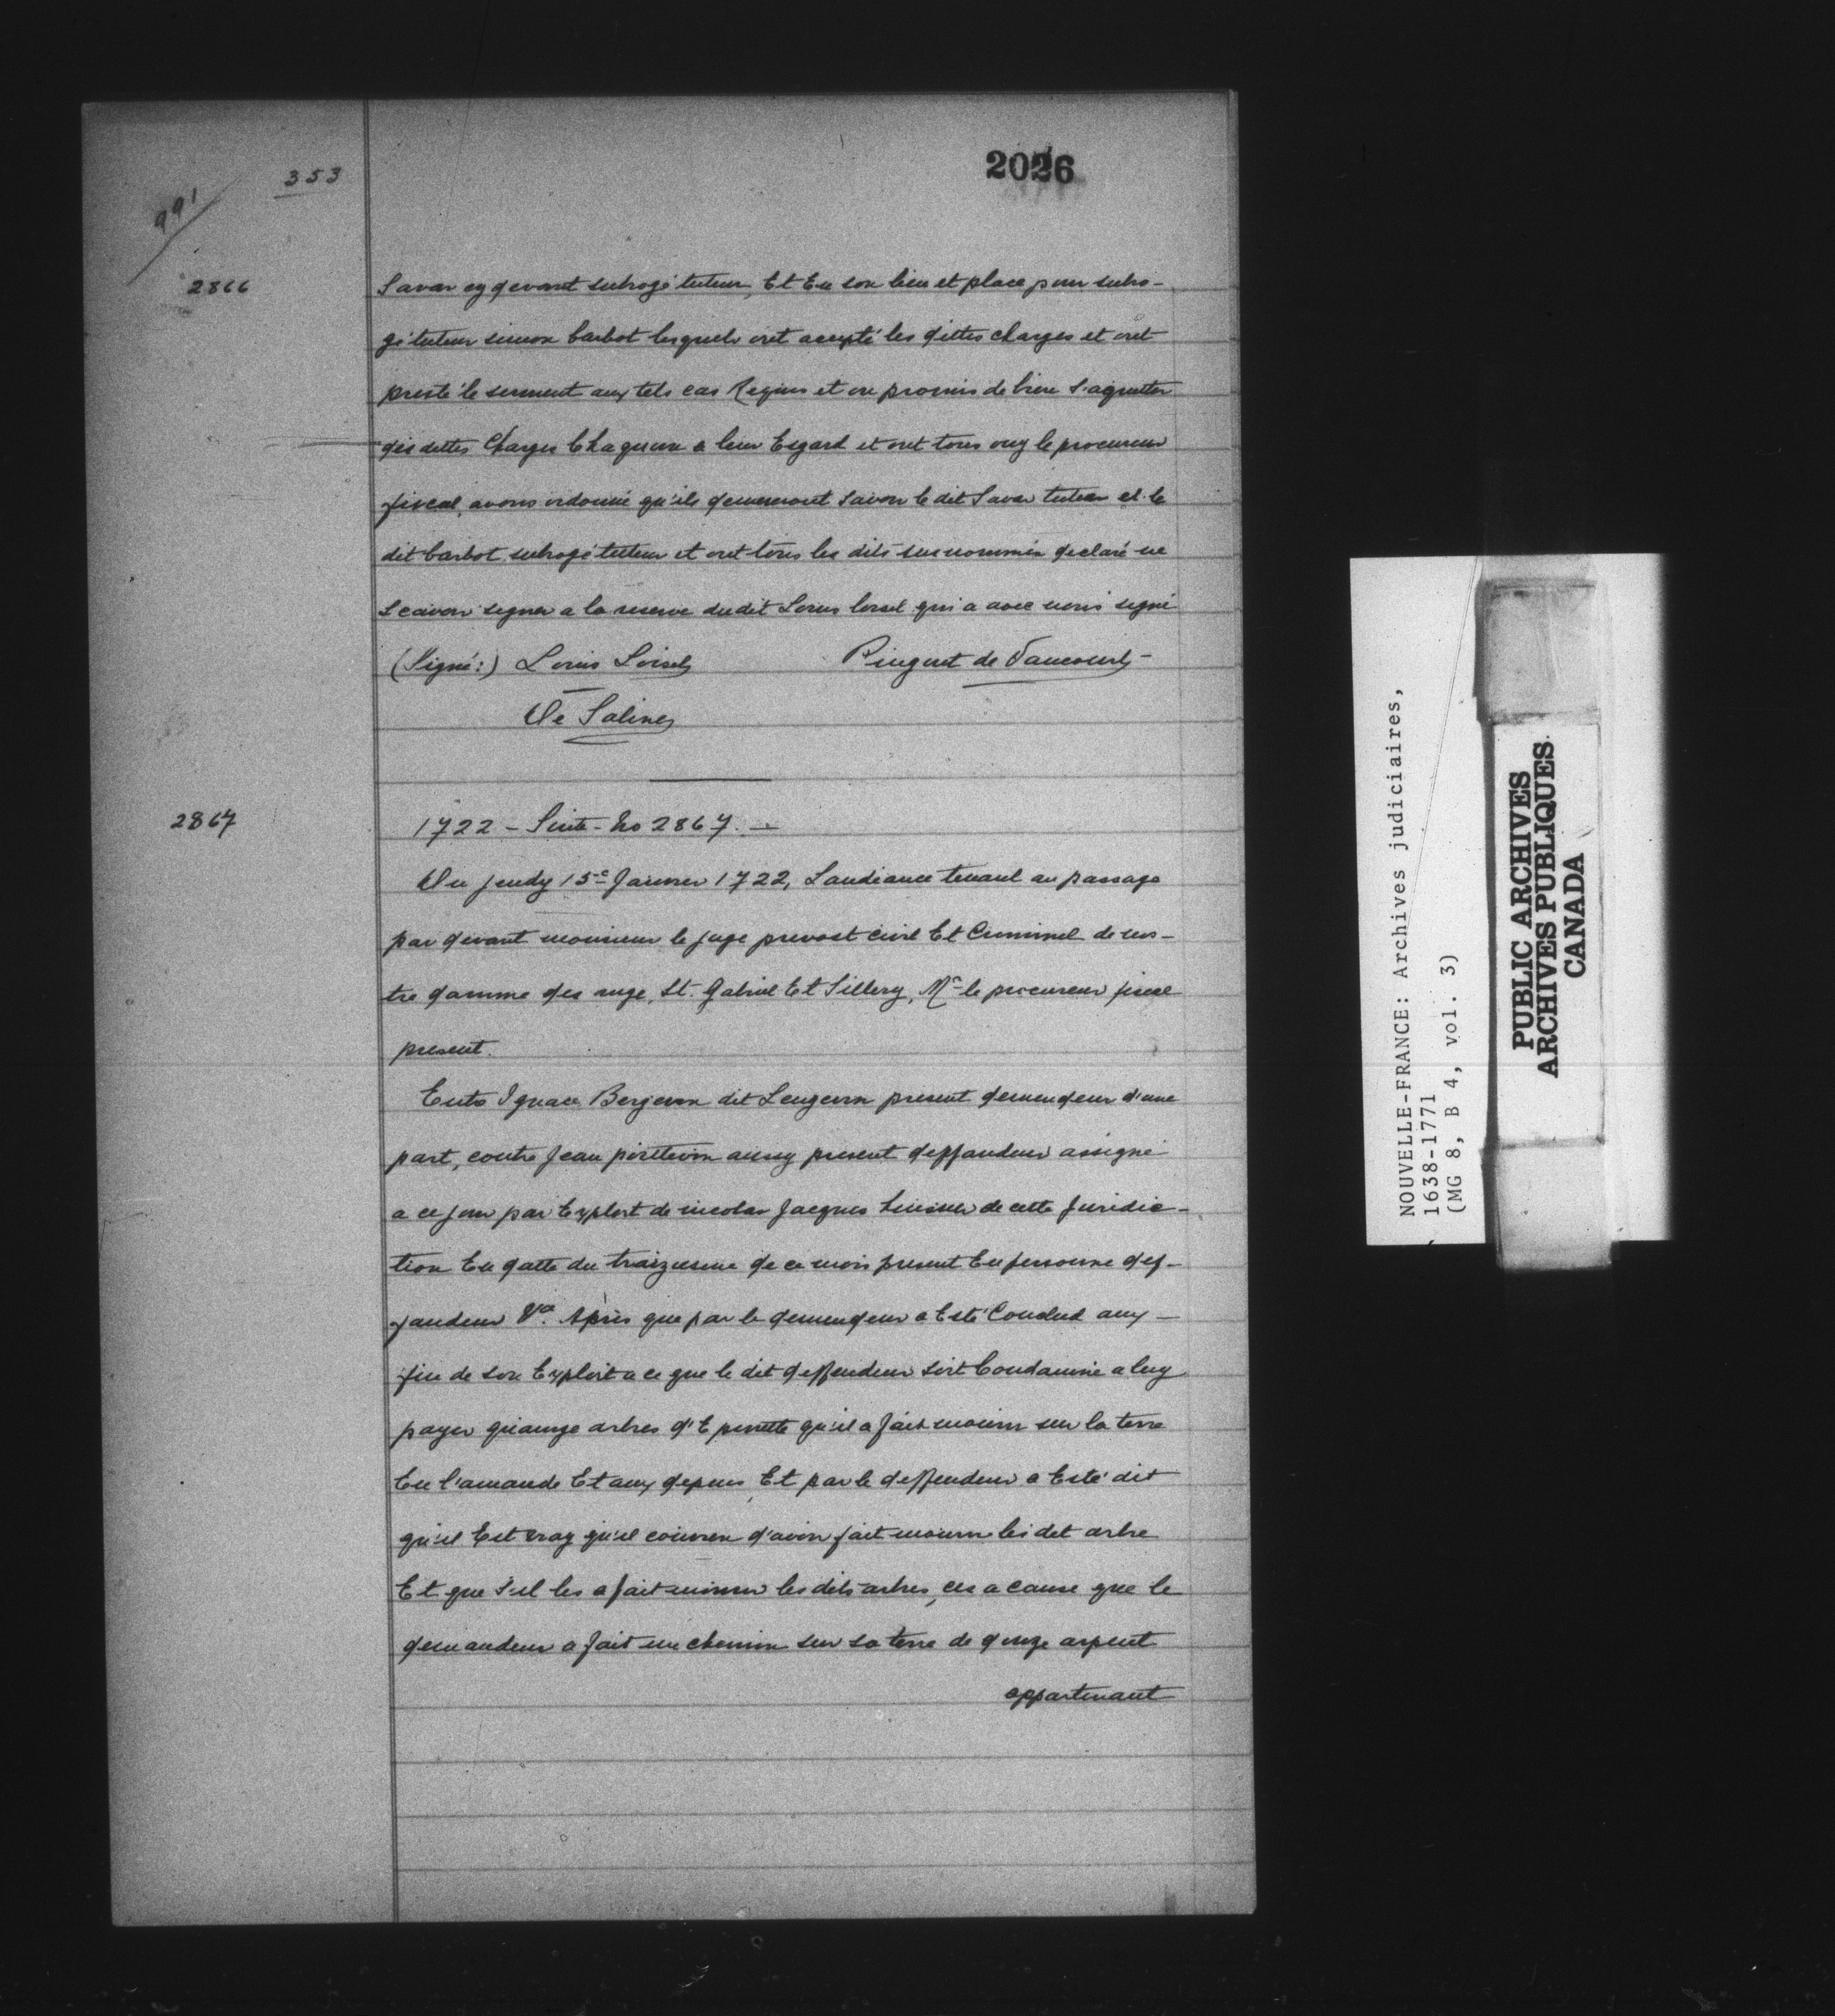 353
2026
991
2866
Savar cy devant subrogé tuteur, Et En son lieu et place pour subro-
gé tuteur simon barbot lesquels ont accepté les dittes charges et ont
presté le serment aux tels cas Requis et on promis de bien s'aquitter
des dittes Charges Chaqueun a leur Esgard et ont tous ouy le procureur
fiscal, avons ordonné qu'ils demeureront savoir le dit Savar tuteur et le
dit barbot subrogé tuteur et ont tous les dits susnommés declaré ne
scavoir signer a la reserve dudit Louis loisel qui a avec nous signé
(Signé:) Louis Loisel Pinguet de Vaucourt
De Saline
2867
1722 - Suite - No 2867. -
Du jeudy 15e Janvier 1722, Laudiance tenant au passage
par devant monsieur le juge prevost civil Et Criminel de nos-
tre damme des ange, St. Gabriel Et Sillery, Mr le procureur fiscal
present.
Entre Ignace Bergeron dit Lengevin present demendeur d'une
part, contre Jean poitevin aussy present deffandeur assigné
a ce jour par Exploit de nicolas Jacques huissier de cette Juridic-
tion En datte du traizieseme de ce mois present En personne def-
fandeur Va. Après que par le demendeur a Esté Conclud aux
fin de son Exploit a ce que le dit deffendeur soit Condamné a luy
payer quainze arbres d'Epinette qu'il a fait mourir sur la terre
En l'amande Et aux depens Et par le deffendeur a Esté dit
qu'il Est vray qu'il convien d'avoir fait mourir les dit arbre
Et que s'il les a fait mourir les dits arbres, ces a cause que le
demandeur a fait un chemin sur sa terre de douze arpent
appartenant
NOUVELLE-FRANCE: Archives judiciaires,
1638-1771
(MG 8, B 4, vol. 3)
PUBLIC ARCHIVES
ARCHIVES PUBLIQUES
CANADA